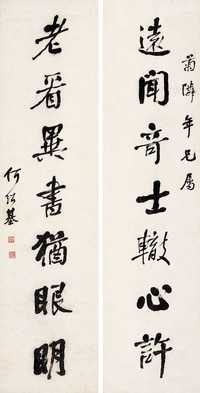 菊隣年兄属
遠聞奇士輙心許
老看異書猶眼明
何紹基